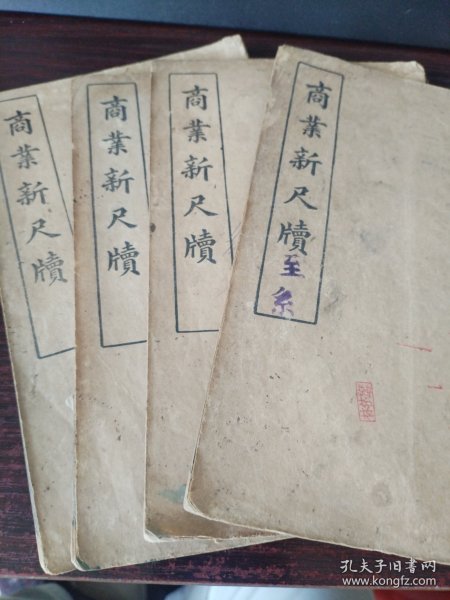 商業新尺牘
商業新尺牘
商業新尺牘
商業新尺牘
至系
孔夫子旧书网
www.kongfz.com